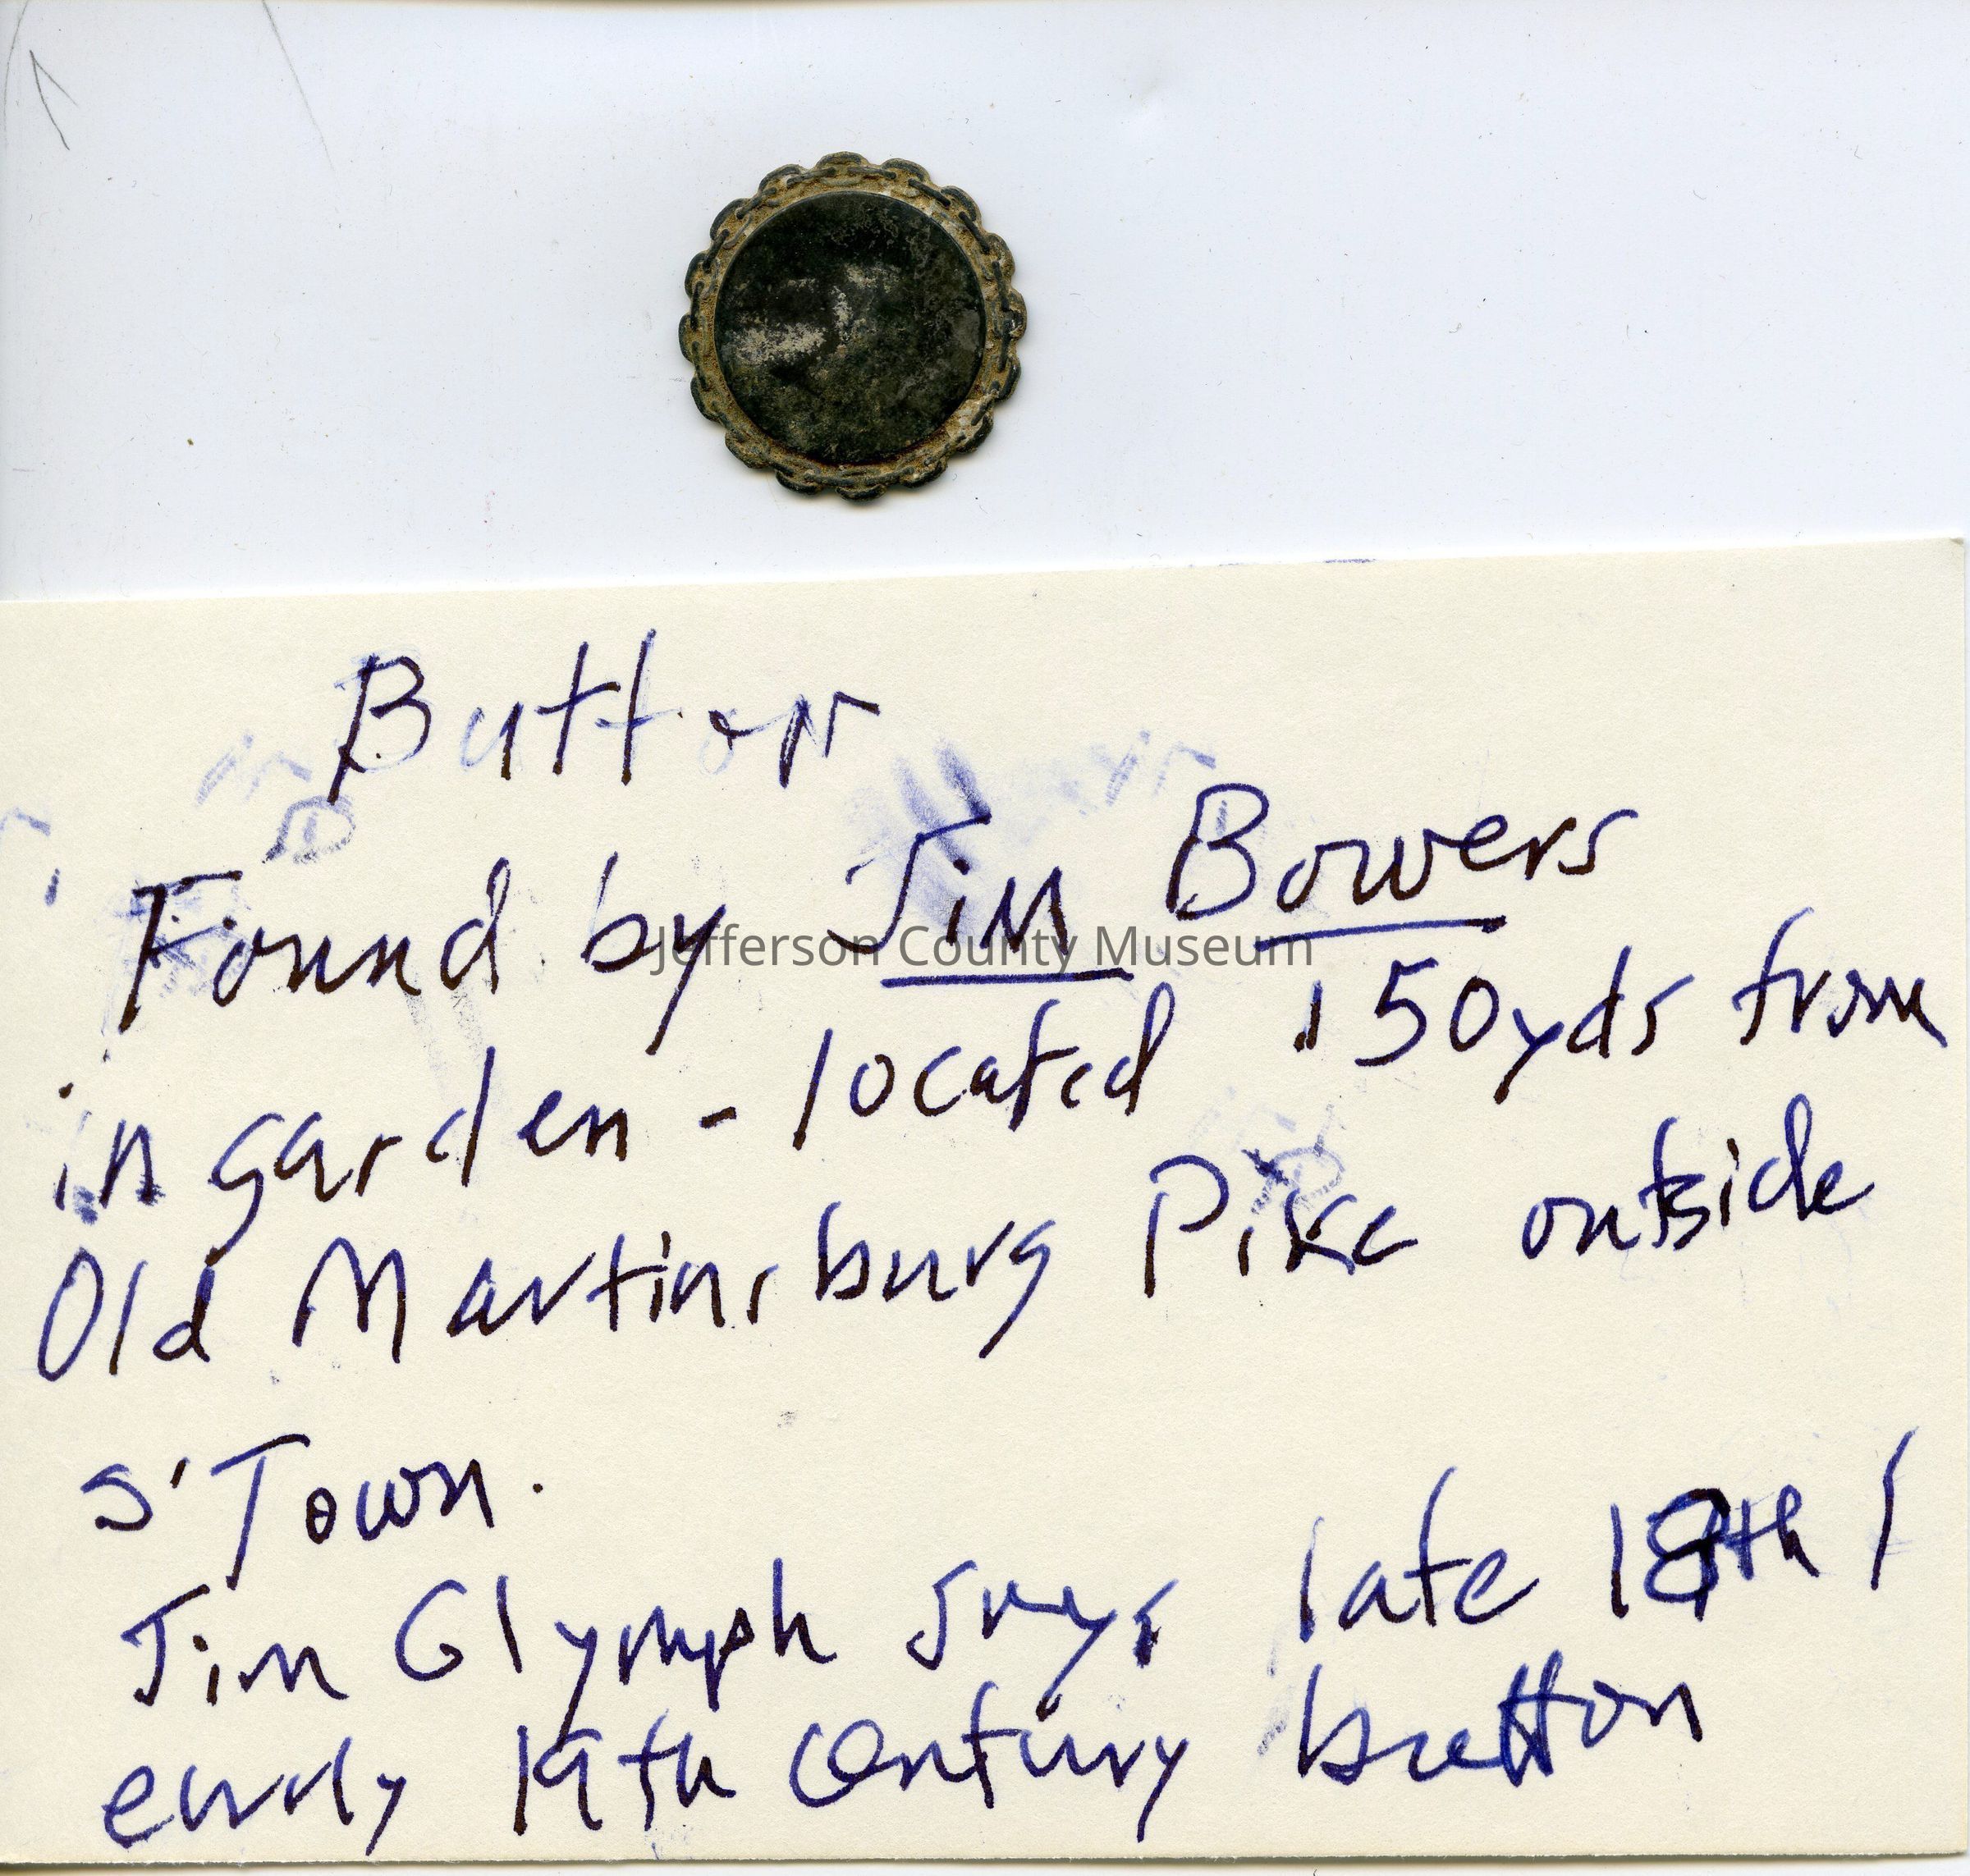 Button
Found by Jim Bowers
Jefferson County Museum
in garden - located 150yds from
Old Martinsburg Pike outside
S'Town.
Jim Glymph says late 18th /
early 19th century button